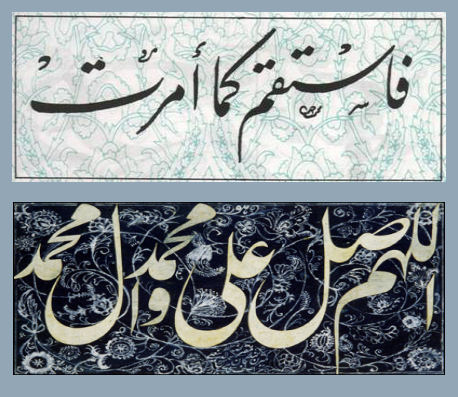 فاستقم كما أمرت
اللهم صل على محمد وآل محمد